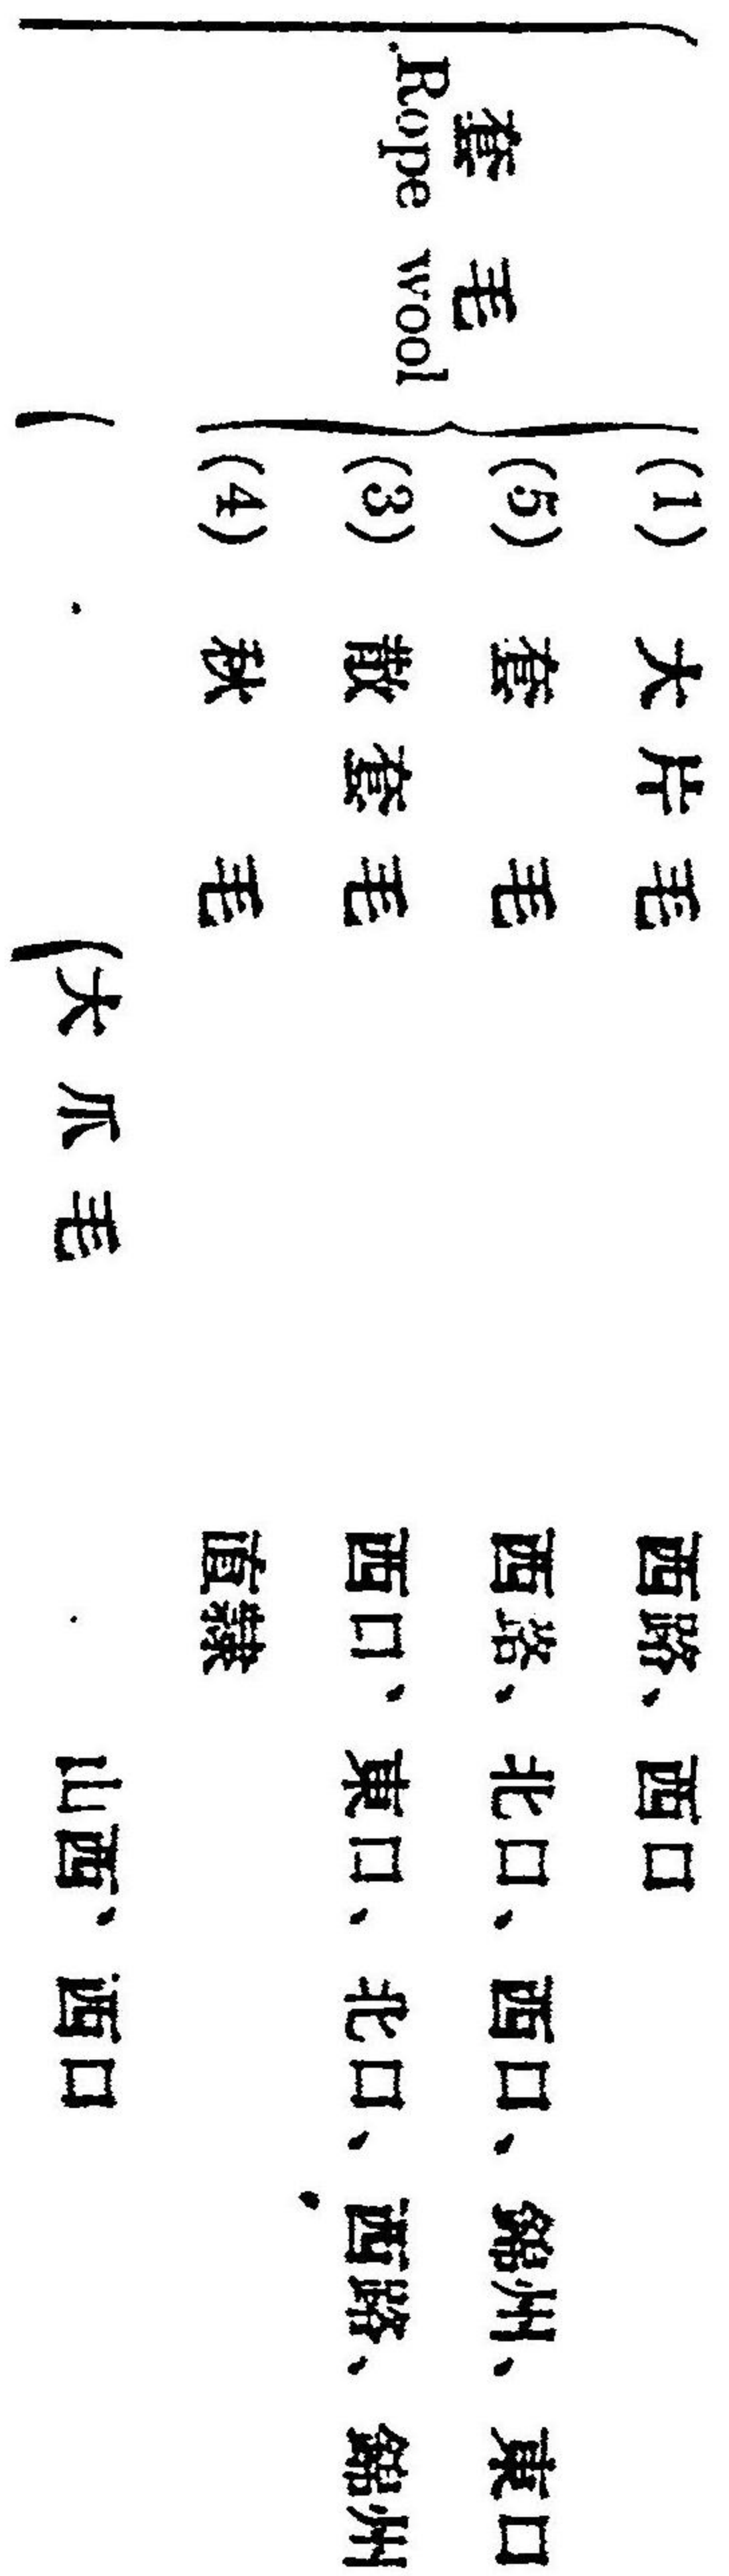 套毛
Rope wool
(1) 大片毛 西路、西口
(5) 套毛 西路、北口、西口、錦州、東口
(3) 散套毛 西口、東口、北口、西路、錦州
(4) 秋毛 直隸
大爪毛 山西、西口